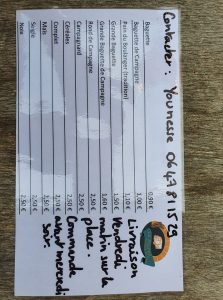 Contacter : Younesse 06 47 81 15 29
Baguette 0,90 €
Baguette de Campagne 1,00 €
Pain du Boulanger (tradition) 1,10 €
Grande Baguette 1,50 €
Grande Baguette de Campagne 1,60 €
Rond de Campagne 2,50 €
Campagnard 2,50 €
Céréales 2,50 €
Complet 2,50 €
Maïs 2,50 €
Seigle 2,50 €
Noix 2,50 €
Livraison
Vendredi
matin sur la
place.
Commande
avant mercredi
soir.